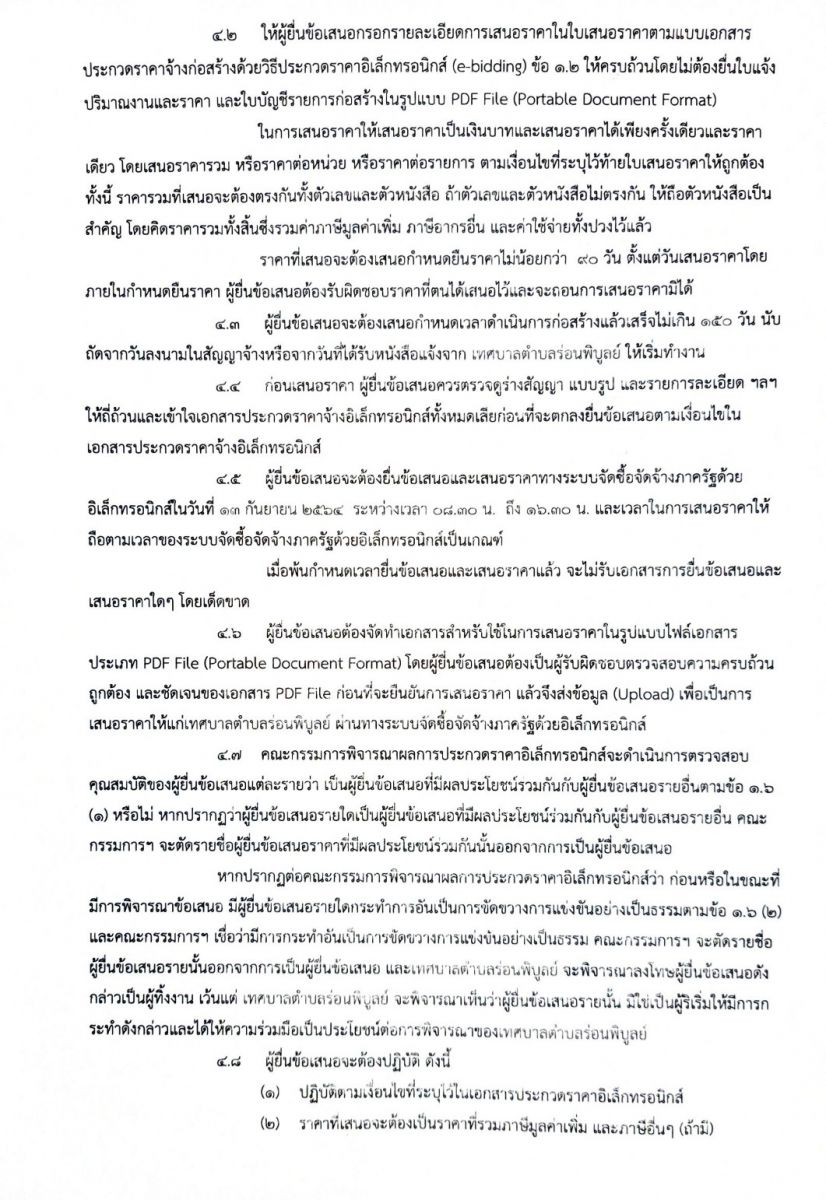 ๔.๒ ให้ผู้ยื่นข้อเสนอกรอกรายละเอียดการเสนอราคาในใบเสนอราคาตามแบบเอกสาร
ประกวดราคาจ้างก่อสร้างด้วยวิธีประกวดราคาอิเล็กทรอนิกส์ (e-bidding) ข้อ ๑.๒ ให้ครบถ้วนโดยไม่ต้องยื่นใบแจ้ง
ปริมาณงานและราคา และใบบัญชีรายการก่อสร้างในรูปแบบ PDF File (Portable Document Format)
ในการเสนอราคาให้เสนอราคาเป็นเงินบาทและเสนอราคาได้เพียงครั้งเดียวและราคา
เดียว โดยเสนอราคารวม หรือราคาต่อหน่วย หรือราคาต่อรายการ ตามเงื่อนไขที่ระบุไว้ท้ายใบเสนอราคาให้ถูกต้อง
ทั้งนี้ ราคารวมที่เสนอจะต้องตรงกันทั้งตัวเลขและตัวหนังสือ ถ้าตัวเลขและตัวหนังสือไม่ตรงกัน ให้ถือตัวหนังสือเป็น
สำคัญ โดยคิดราคารวมทั้งสิ้นซึ่งรวมค่าภาษีมูลค่าเพิ่ม ภาษีอากรอื่น และค่าใช้จ่ายทั้งปวงไว้แล้ว
ราคาที่เสนอจะต้องเสนอกำหนดยืนราคาไม่น้อยกว่า ๙๐ วัน ตั้งแต่วันเสนอราคาโดย
ภายในกำหนดยืนราคา ผู้ยื่นข้อเสนอต้องรับผิดชอบราคาที่ตนได้เสนอไว้และจะถอนการเสนอราคามิได้
๔.๓ ผู้ยื่นข้อเสนอจะต้องเสนอกำหนดเวลาดำเนินการก่อสร้างแล้วเสร็จไม่เกิน ๑๕๐ วัน นับ
ถัดจากวันลงนามในสัญญาจ้างหรือจากวันที่ได้รับหนังสือแจ้งจาก เทศบาลตำบลร่อนพิบูลย์ ให้เริ่มทำงาน
๔.๔ ก่อนเสนอราคา ผู้ยื่นข้อเสนอควรตรวจดูร่างสัญญา แบบรูป และรายการละเอียด ฯลฯ
ให้ถี่ถ้วนและเข้าใจเอกสารประกวดราคาจ้างอิเล็กทรอนิกส์ทั้งหมดเสียก่อนที่จะตกลงยื่นข้อเสนอตามเงื่อนไขใน
เอกสารประกวดราคาจ้างอิเล็กทรอนิกส์
๔.๕ ผู้ยื่นข้อเสนอจะต้องยื่นข้อเสนอและเสนอราคาทางระบบจัดซื้อจัดจ้างภาครัฐด้วย
อิเล็กทรอนิกส์ในวันที่ ๑๓ กันยายน ๒๕๖๔ ระหว่างเวลา ๐๘.๓๐ น. ถึง ๑๖.๓๐ น. และเวลาในการเสนอราคาให้
ถือตามเวลาของระบบจัดซื้อจัดจ้างภาครัฐด้วยอิเล็กทรอนิกส์เป็นเกณฑ์
เมื่อพ้นกำหนดเวลายื่นข้อเสนอและเสนอราคาแล้ว จะไม่รับเอกสารการยื่นข้อเสนอและ
เสนอราคาใดๆ โดยเด็ดขาด
๔.๖ ผู้ยื่นข้อเสนอต้องจัดทำเอกสารสำหรับใช้ในการเสนอราคาในรูปแบบไฟล์เอกสาร
ประเภท PDF File (Portable Document Format) โดยผู้ยื่นข้อเสนอต้องเป็นผู้รับผิดชอบตรวจสอบความครบถ้วน
ถูกต้อง และชัดเจนของเอกสาร PDF File ก่อนที่จะยืนยันการเสนอราคา แล้วจึงส่งข้อมูล (Upload) เพื่อเป็นการ
เสนอราคาให้แก่เทศบาลตำบลร่อนพิบูลย์ ผ่านทางระบบจัดซื้อจัดจ้างภาครัฐด้วยอิเล็กทรอนิกส์
๔.๗ คณะกรรมการพิจารณาผลการประกวดราคาอิเล็กทรอนิกส์จะดำเนินการตรวจสอบ
คุณสมบัติของผู้ยื่นข้อเสนอแต่ละรายว่า เป็นผู้ยื่นข้อเสนอที่มีผลประโยชน์ร่วมกันกับผู้ยื่นข้อเสนอรายอื่นตามข้อ ๑.๖
(๑) หรือไม่ หากปรากฏว่าผู้ยื่นข้อเสนอรายใดเป็นผู้ยื่นข้อเสนอที่มีผลประโยชน์ร่วมกันกับผู้ยื่นข้อเสนอรายอื่น คณะ
กรรมการฯ จะตัดรายชื่อผู้ยื่นข้อเสนอราคาที่มีผลประโยชน์ร่วมกันนั้นออกจากการเป็นผู้ยื่นข้อเสนอ
หากปรากฏต่อคณะกรรมการพิจารณาผลการประกวดราคาอิเล็กทรอนิกส์ว่า ก่อนหรือในขณะที่
มีการพิจารณาข้อเสนอ มีผู้ยื่นข้อเสนอรายใดกระทำการอันเป็นการขัดขวางการแข่งขันอย่างเป็นธรรมตามข้อ ๑.๖ (๒)
และคณะกรรมการฯ เชื่อว่ามีการกระทำอันเป็นการขัดขวางการแข่งขันอย่างเป็นธรรม คณะกรรมการฯ จะตัดรายชื่อ
ผู้ยื่นข้อเสนอรายนั้นออกจากการเป็นผู้ยื่นข้อเสนอ และเทศบาลตำบลร่อนพิบูลย์ จะพิจารณาลงโทษผู้ยื่นข้อเสนอดัง
กล่าวเป็นผู้ทิ้งงาน เว้นแต่ เทศบาลตำบลร่อนพิบูลย์ จะพิจารณาเห็นว่าผู้ยื่นข้อเสนอรายนั้น มิใช่เป็นผู้ริเริ่มให้มีการก
ระทำดังกล่าวและได้ให้ความร่วมมือเป็นประโยชน์ต่อการพิจารณาของเทศบาลตำบลร่อนพิบูลย์
๔.๘ ผู้ยื่นข้อเสนอจะต้องปฏิบัติ ดังนี้
(๑) ปฏิบัติตามเงื่อนไขที่ระบุไว้ในเอกสารประกวดราคาอิเล็กทรอนิกส์
(๒) ราคาที่เสนอจะต้องเป็นราคาที่รวมภาษีมูลค่าเพิ่ม และภาษีอื่นๆ (ถ้ามี)